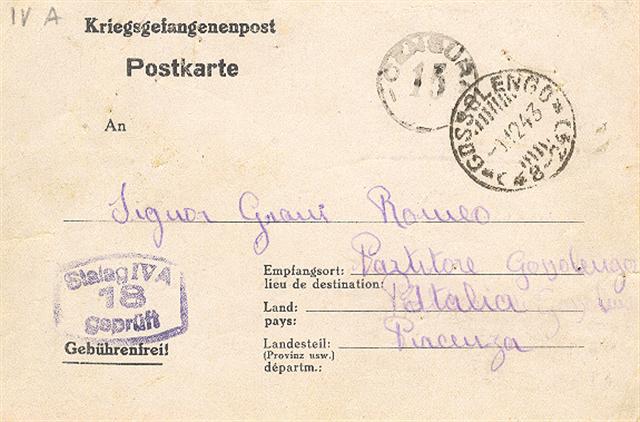 IV A
Kriegsgefangenenpost
Postkarte
CENSUR
15
GOSSOLENGO
12 43
An
Signor Grani Romeo
Stalag IV A
18
geprüft
Gebührenfrei!
Empfangsort: Partitore Gossolengo
lieu de destination:
Land: Italia
pays:
Landesteil: Piacenza
(Provinz usw.)
départm.: